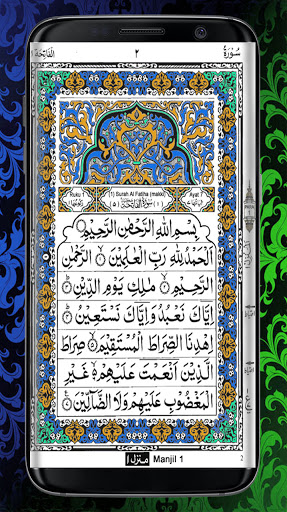 سُوْرَةُ ٢ اَلْفَاتِحَة
Ruku (1) Surah Al Fatiha (makki) Ayat
سُوْرَةُ الْفَاتِحَةِ
بِسْمِ اللّٰهِ الرَّحْمٰنِ الرَّحِيْمِ
اَلْحَمْدُ لِلّٰهِ رَبِّ الْعٰلَمِيْنَ ۝ الرَّحْمٰنِ
الرَّحِيْمِ ۝ مٰلِكِ يَوْمِ الدِّيْنِ ۝
اِيَّاكَ نَعْبُدُ وَاِيَّاكَ نَسْتَعِيْنُ ۝
اِهْدِنَا الصِّرَاطَ الْمُسْتَقِيْمَ ۝ صِرَاطَ
الَّذِيْنَ اَنْعَمْتَ عَلَيْهِمْ ۝ غَيْرِ
الْمَغْضُوْبِ عَلَيْهِمْ وَلَا الضَّآلِّيْنَ ۝
منزل ١ Manjil 1
2